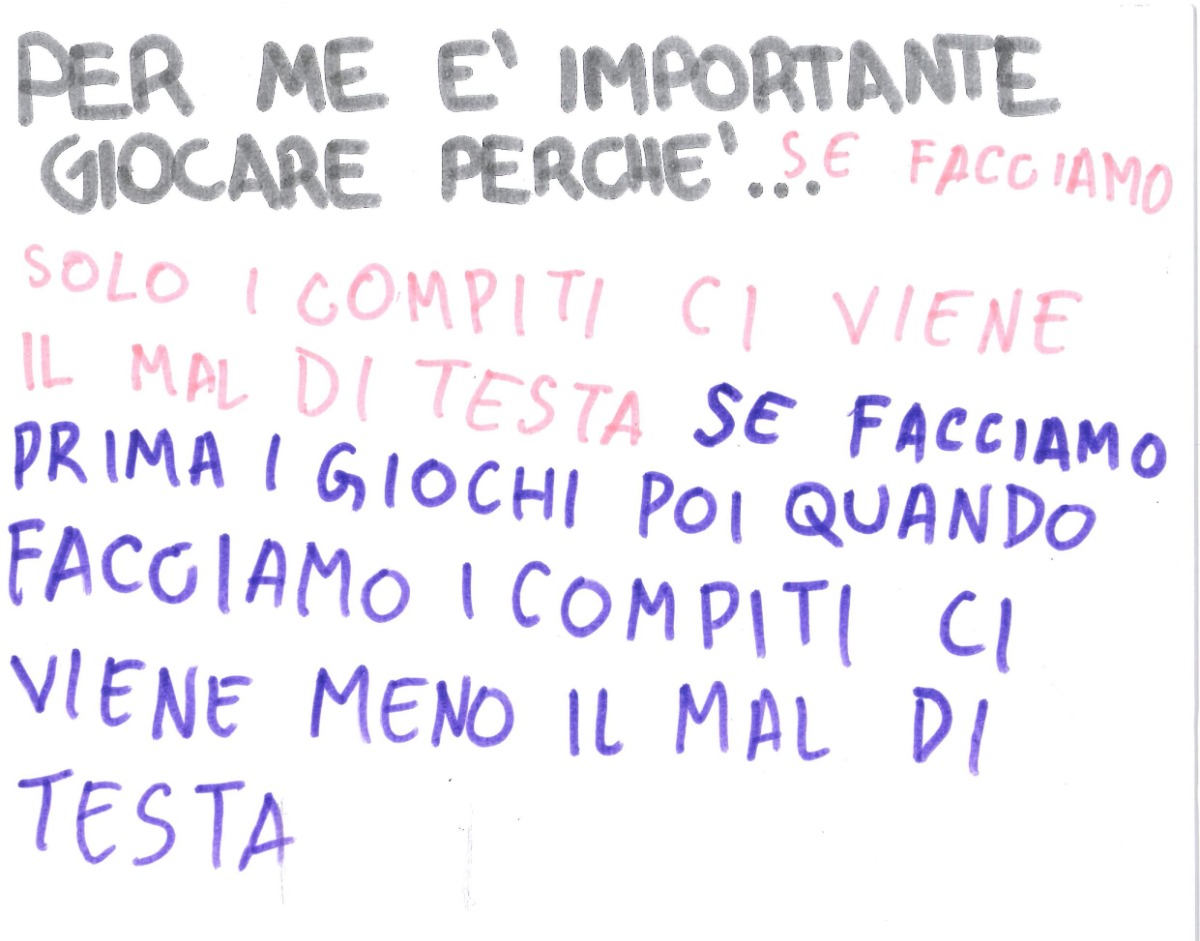 PER ME E' IMPORTANTE
GIOCARE PERCHE'... SE FACCIAMO
SOLO I COMPITI CI VIENE
IL MAL DI TESTA SE FACCIAMO
PRIMA I GIOCHI POI QUANDO
FACCIAMO I COMPITI CI
VIENE MENO IL MAL DI
TESTA